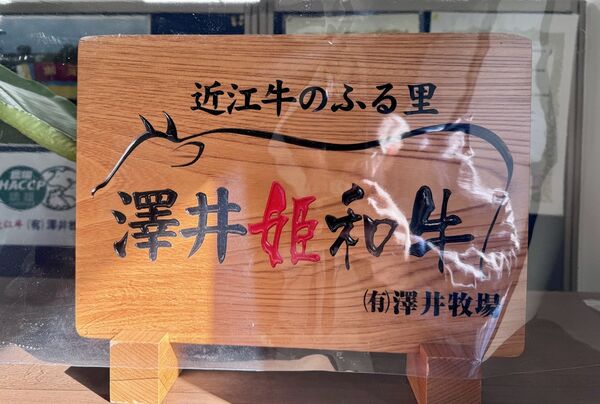 近江牛のふる里
澤井姫和牛
(有)澤井牧場
農場
HACCP
近江牛 (有)澤井牧